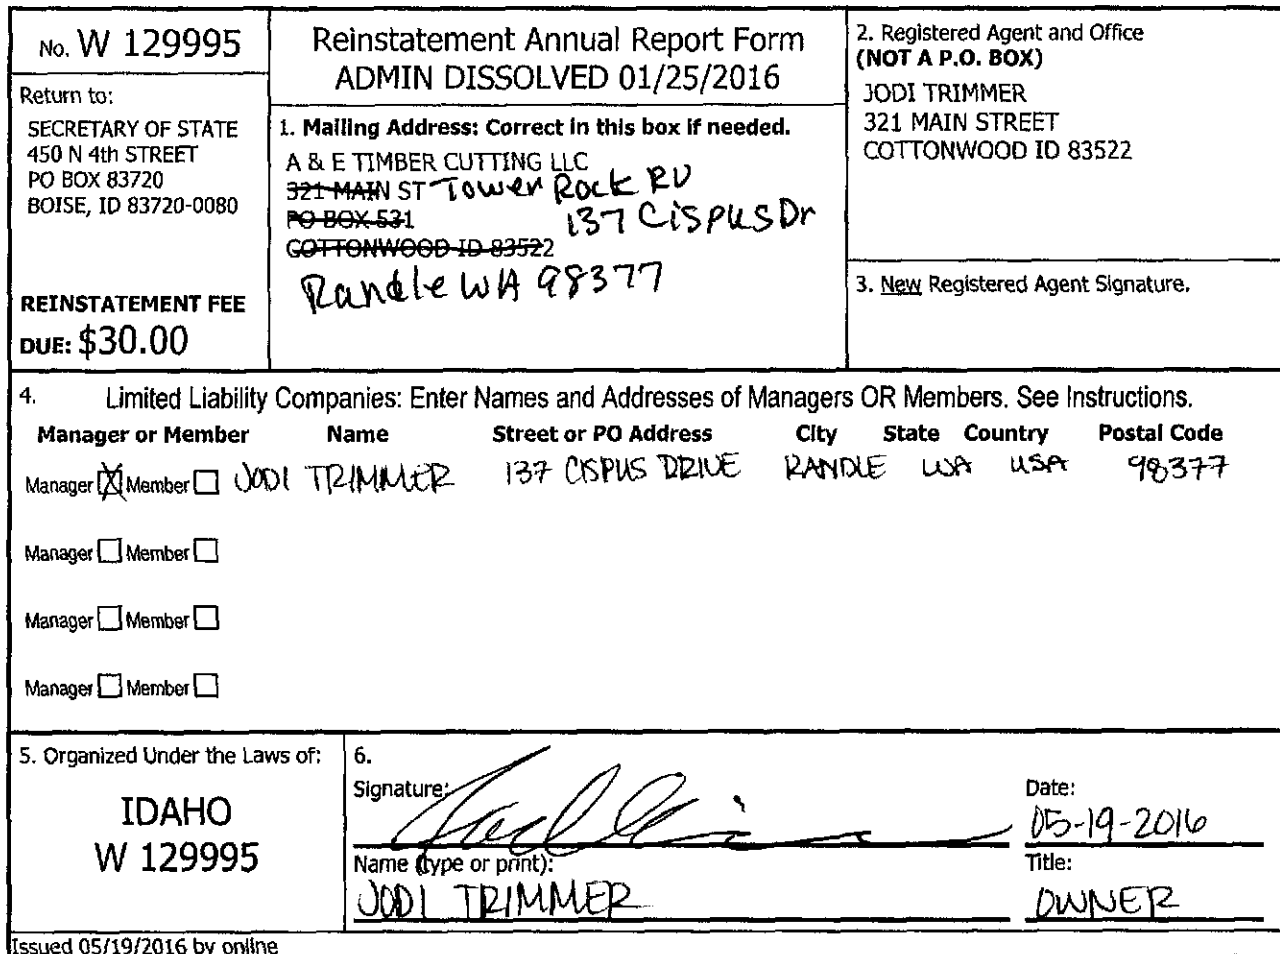 No. W 129995
Return to:
SECRETARY OF STATE
450 N 4th STREET
PO BOX 83720
BOISE, ID 83720-0080
REINSTATEMENT FEE
DUE: $30.00
Reinstatement Annual Report Form
ADMIN DISSOLVED 01/25/2016
1. Mailing Address: Correct in this box if needed.
A & E TIMBER CUTTING LLC
321 MAIN ST Tower Rock RV
PO BOX 531 137 Cispus Dr
COTTONWOOD ID 83522
Randle WA 98377
2. Registered Agent and Office
(NOT A P.O. BOX)
JODI TRIMMER
321 MAIN STREET
COTTONWOOD ID 83522
3. New Registered Agent Signature.
4. Limited Liability Companies: Enter Names and Addresses of Managers OR Members. See Instructions.
Manager or Member Name Street or PO Address City State Country Postal Code
Manager Member JODI TRIMMER 137 CISPUS DRIVE RANDLE WA USA 98377
Manager Member
Manager Member
Manager Member
5. Organized Under the Laws of:
IDAHO
W 129995
6.
Signature:
Date:
05-19-2016
Name (type or print):
JODI TRIMMER
Title:
OWNER
Issued 05/19/2016 by online